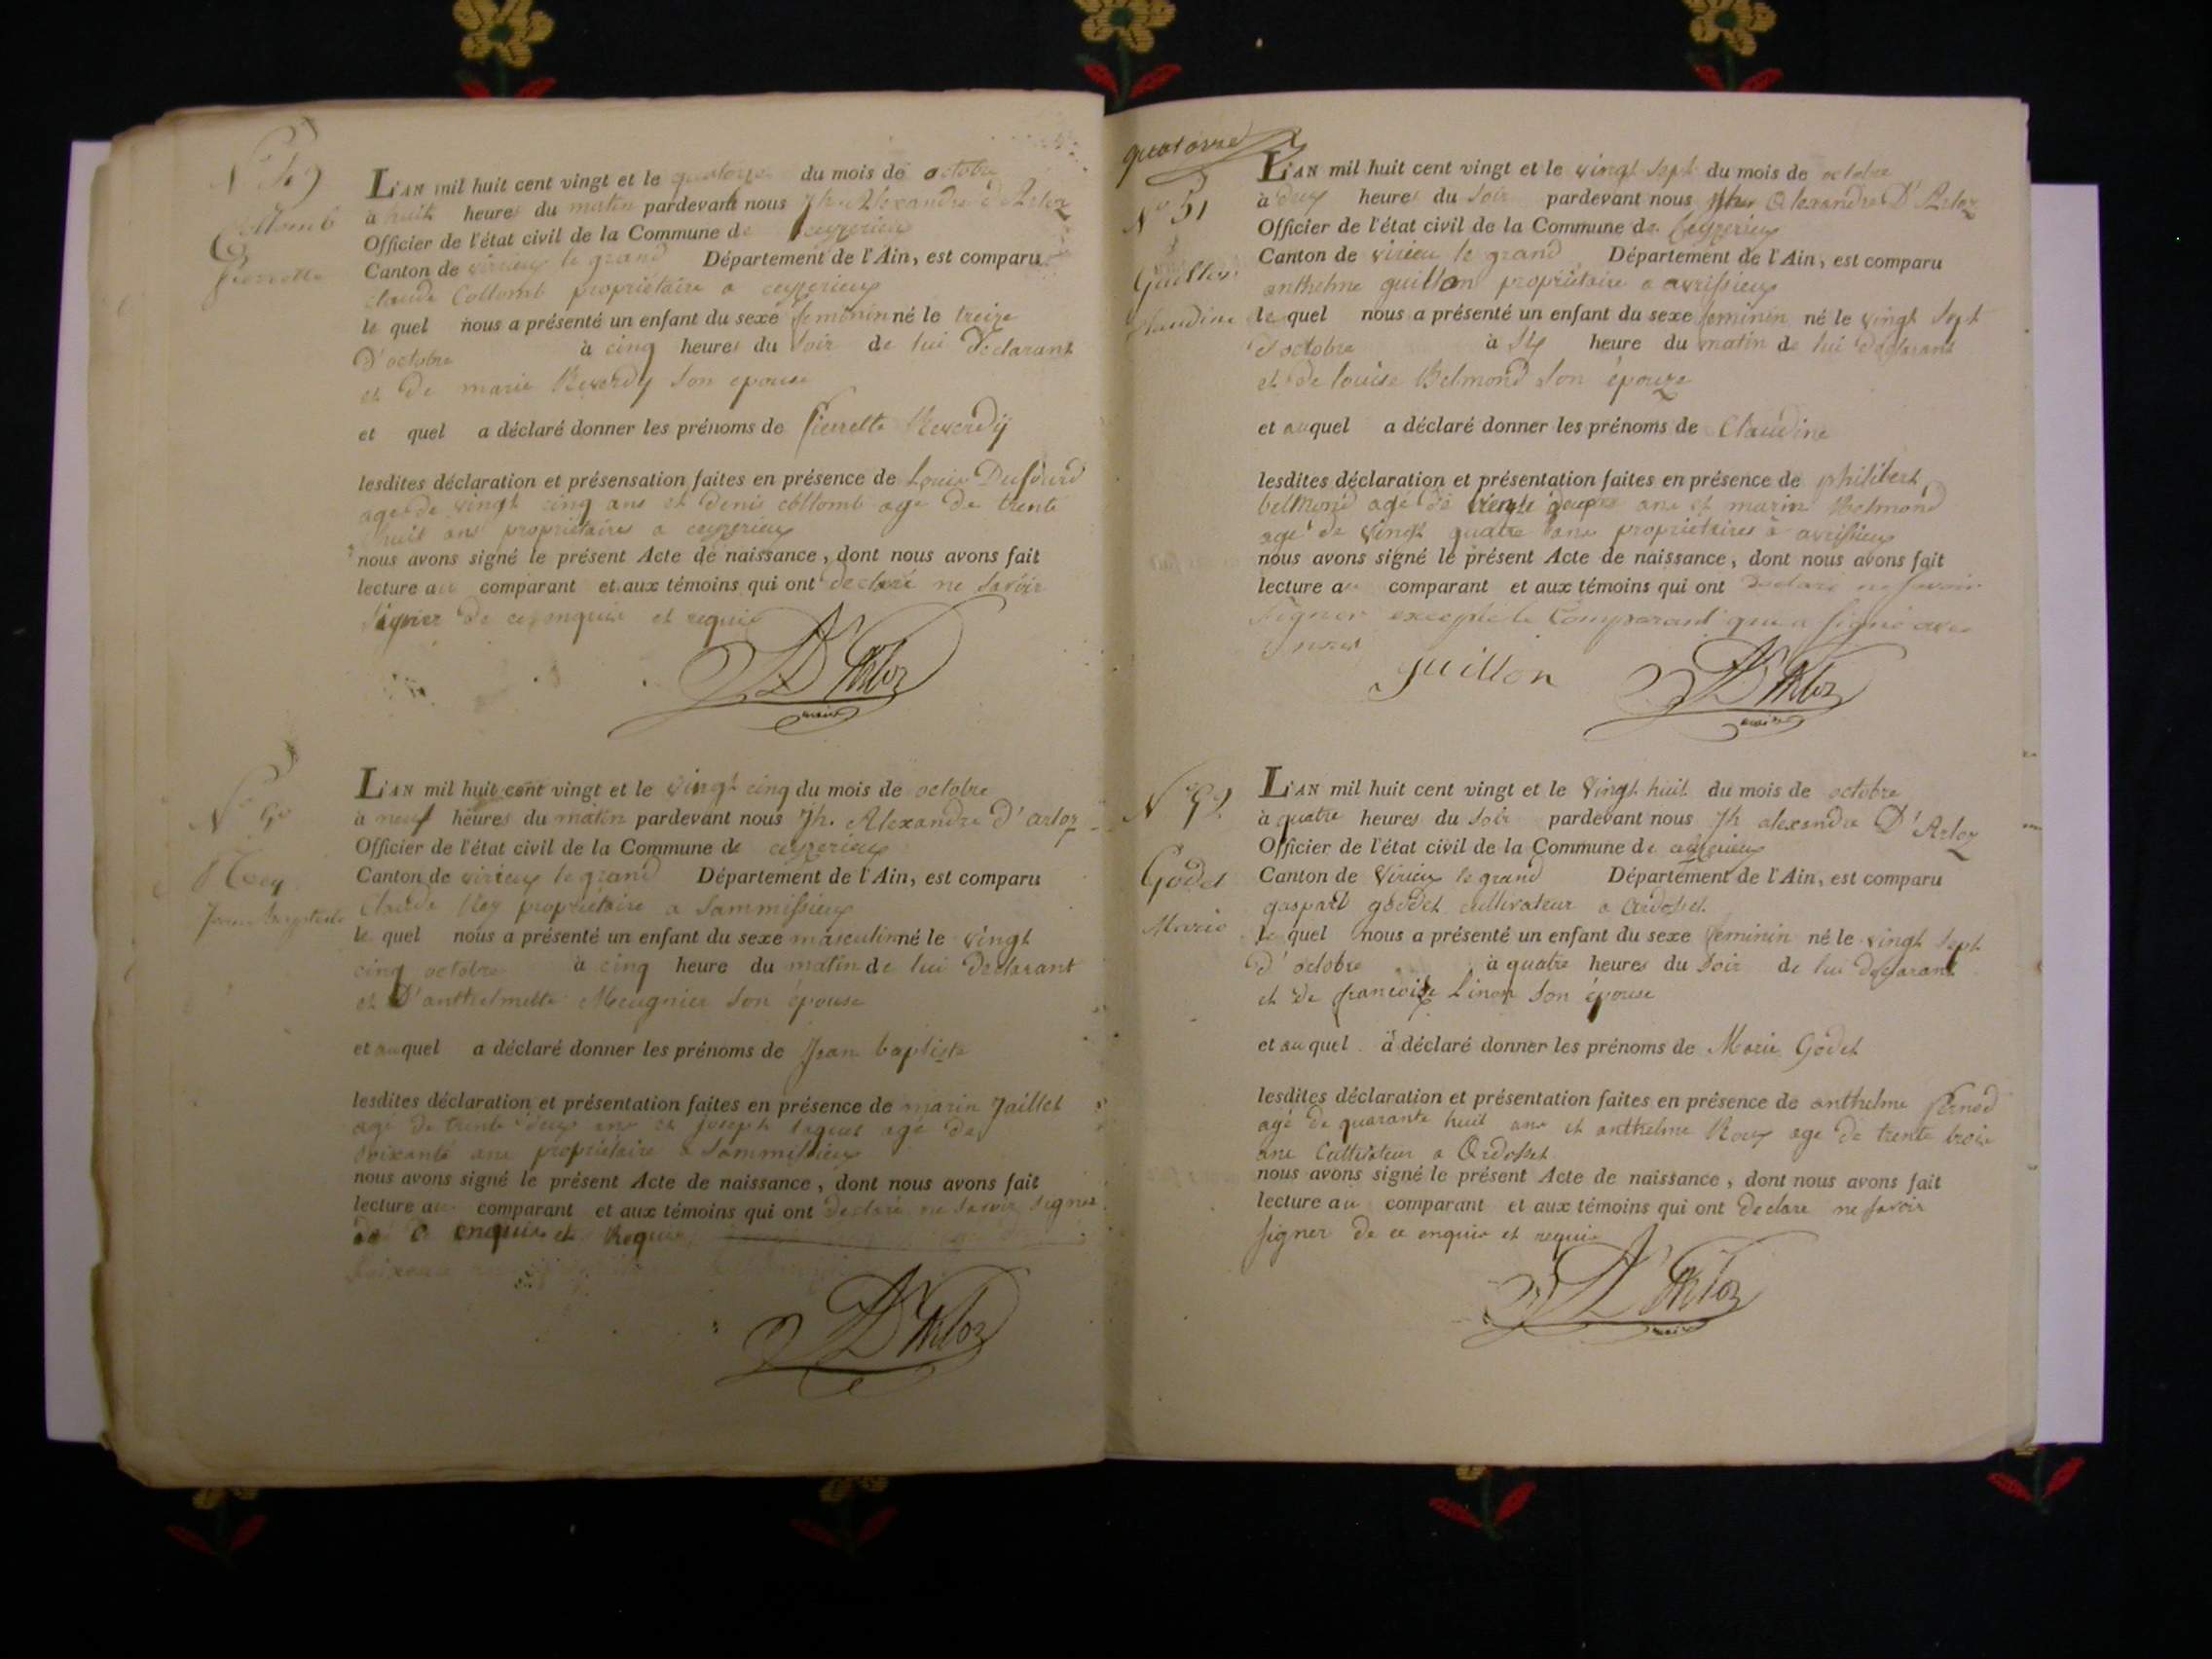 N° 49
Collomb
Pierrette
L'AN mil huit cent vingt et le quatorze du mois de octobre
à huit heures du matin pardevant nous Jh. Alexandre d'Arloz
Officier de l'état civil de la Commune de Ceyzerieux
Canton de virieux le grand Département de l'Ain, est comparu
claude Collomb propriétaire a ceyzerieux
le quel nous a présenté un enfant du sexe feminin né le treize
d'octobre à cinq heures du soir de lui declarant
et de marie Reverdy son epouse
et quel a déclaré donner les prénoms de Pierrette Reverdÿ
lesdites déclaration et présensation faites en présence de Louis Dufourd
age de vingt cinq ans et denis collomb age de trente
huit ans propriétaires a ceyzerieux
nous avons signé le présent Acte de naissance, dont nous avons fait
lecture au comparant et aux témoins qui ont declaré ne savoir
signer de ce enquis et requis
D'Arloz
maire
N° 50
Rey
Jean Baptiste
L'AN mil huit cent vingt et le vingt cinq du mois de octobre
à neuf heures du matin pardevant nous Jh. Alexandre d'arloz
Officier de l'état civil de la Commune de ceyzerieux
Canton de virieux le grand Département de l'Ain, est comparu
Claude Rey propriétaire a Sammissieux
le quel nous a présenté un enfant du sexe masculin né le vingt
cinq octobre à cinq heure du matin de lui declarant
et D'anthelmette Meugnier son épouse
et au quel a déclaré donner les prénoms de Jean baptiste
lesdites déclaration et présentation faites en présence de marin Jaillet
agé de trente deux ans et joseph age de
soixante ans propriétaire a Sammissieux
nous avons signé le présent Acte de naissance, dont nous avons fait
lecture au comparant et aux témoins qui ont declaré ne savoir signer
de ce enquis et Requis
D'Arloz
quatorze
N° 51
Guillon
Claudine
L'AN mil huit cent vingt et le vingt sept du mois de octobre
à deux heures du soir pardevant nous Jh Alexandre D'Arloz
Officier de l'état civil de la Commune de Ceyzerieux
Canton de virieu le grand Département de l'Ain, est comparu
anthelme guillon propriétaire a avrissieux
le quel nous a présenté un enfant du sexe feminin né le vingt sept
d'octobre à six heure du matin de lui declarant
et de louise Belmond son épouze
et au quel a déclaré donner les prénoms de Claudine
lesdites déclaration et présentation faites en présence de philibert
belmond agé de trente deux ans et marin Belmond
agé de vingt quatre ans propriétaires à avrissieux
nous avons signé le présent Acte de naissance, dont nous avons fait
lecture au comparant et aux témoins qui ont declaré ne savoir
signer excepté le Comparant qui a signé avec
nous
guillon
D'Arloz
maire
N° 52
Godet
Marie
L'AN mil huit cent vingt et le vingt huit du mois de octobre
à quatre heures du soir pardevant nous Jh alexandre D'Arloz
Officier de l'état civil de la Commune de ceyzerieux
Canton de Virieu le grand Département de l'Ain, est comparu
gaspard goddet cultivateur a ardosset
le quel nous a présenté un enfant du sexe feminin né le vingt sept
d'octobre à quatre heures du soir de lui declarant
et de francoise Linon son épouse
et au quel à déclaré donner les prénoms de Marie Godet
lesdites déclaration et présentation faites en présence de anthelme Pernod
agé de quarante huit ans et anthelme Roux age de trente trois
ans Cultivateur a Ordosset
nous avons signé le présent Acte de naissance, dont nous avons fait
lecture au comparant et aux témoins qui ont declare ne savoir
signer de ce enquis et requis
D'Arloz
maire